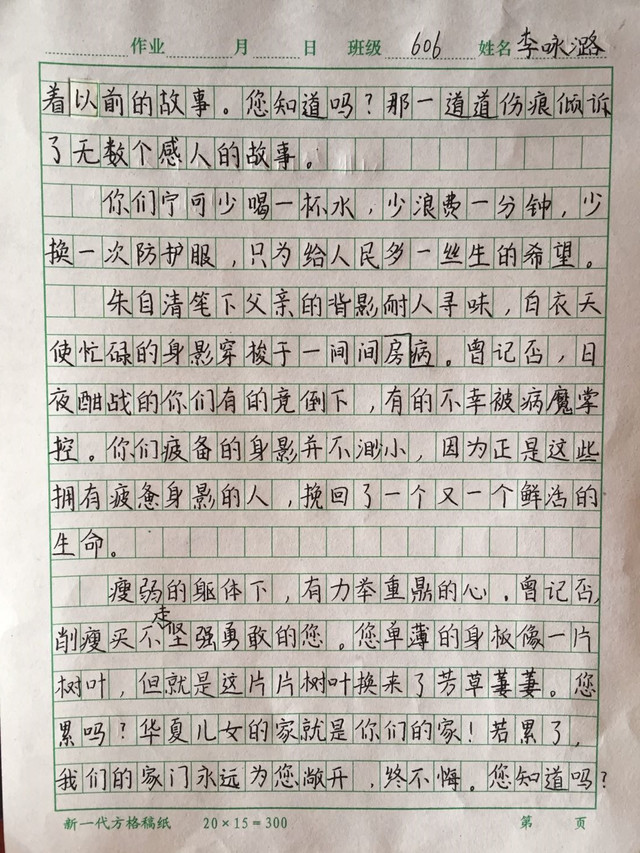 作业 月 日 班级 606 姓名 李咏潞
着以前的故事。您知道吗?那一道道伤痕倾诉
了无数个感人的故事。
你们宁可少喝一杯水,少浪费一分钟,少
换一次防护服,只为给人民多一丝生的希望。
朱自清笔下父亲的背影耐人寻味,白衣天
使忙碌的身影穿梭于一间间房病。曾记否,日
夜酣战的你们有的竟倒下,有的不幸被病魔掌
控。你们疲惫的身影并不渺小,因为正是这些
拥有疲惫身影的人,挽回了一个又一个鲜活的
生命。
瘦弱的躯体下,有力举重鼎的心。曾记否,
削瘦买不走坚强勇敢的您。您单薄的身板像一片
树叶,但就是这片片树叶换来了芳草萋萋。您
累吗?华夏儿女的家就是你们的家!若累了,
我们的家门永远为您敞开,终不悔。您知道吗?
新一代方格稿纸 20×15=300 第 页